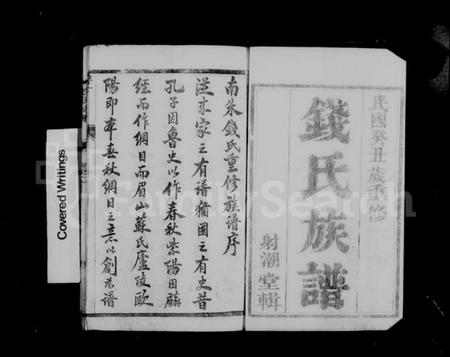 民國癸丑歲重修
錢氏族譜
射潮堂輯
南朱錢氏重修族譜序
從來家之有譜猶國之有史昔
孔子因魯史以作春秋紫陽因麟
經而作綱目而眉山蘇氏廬陵歐
陽即本春秋綱目之意以創為譜
Covered Writings
FamilySearch